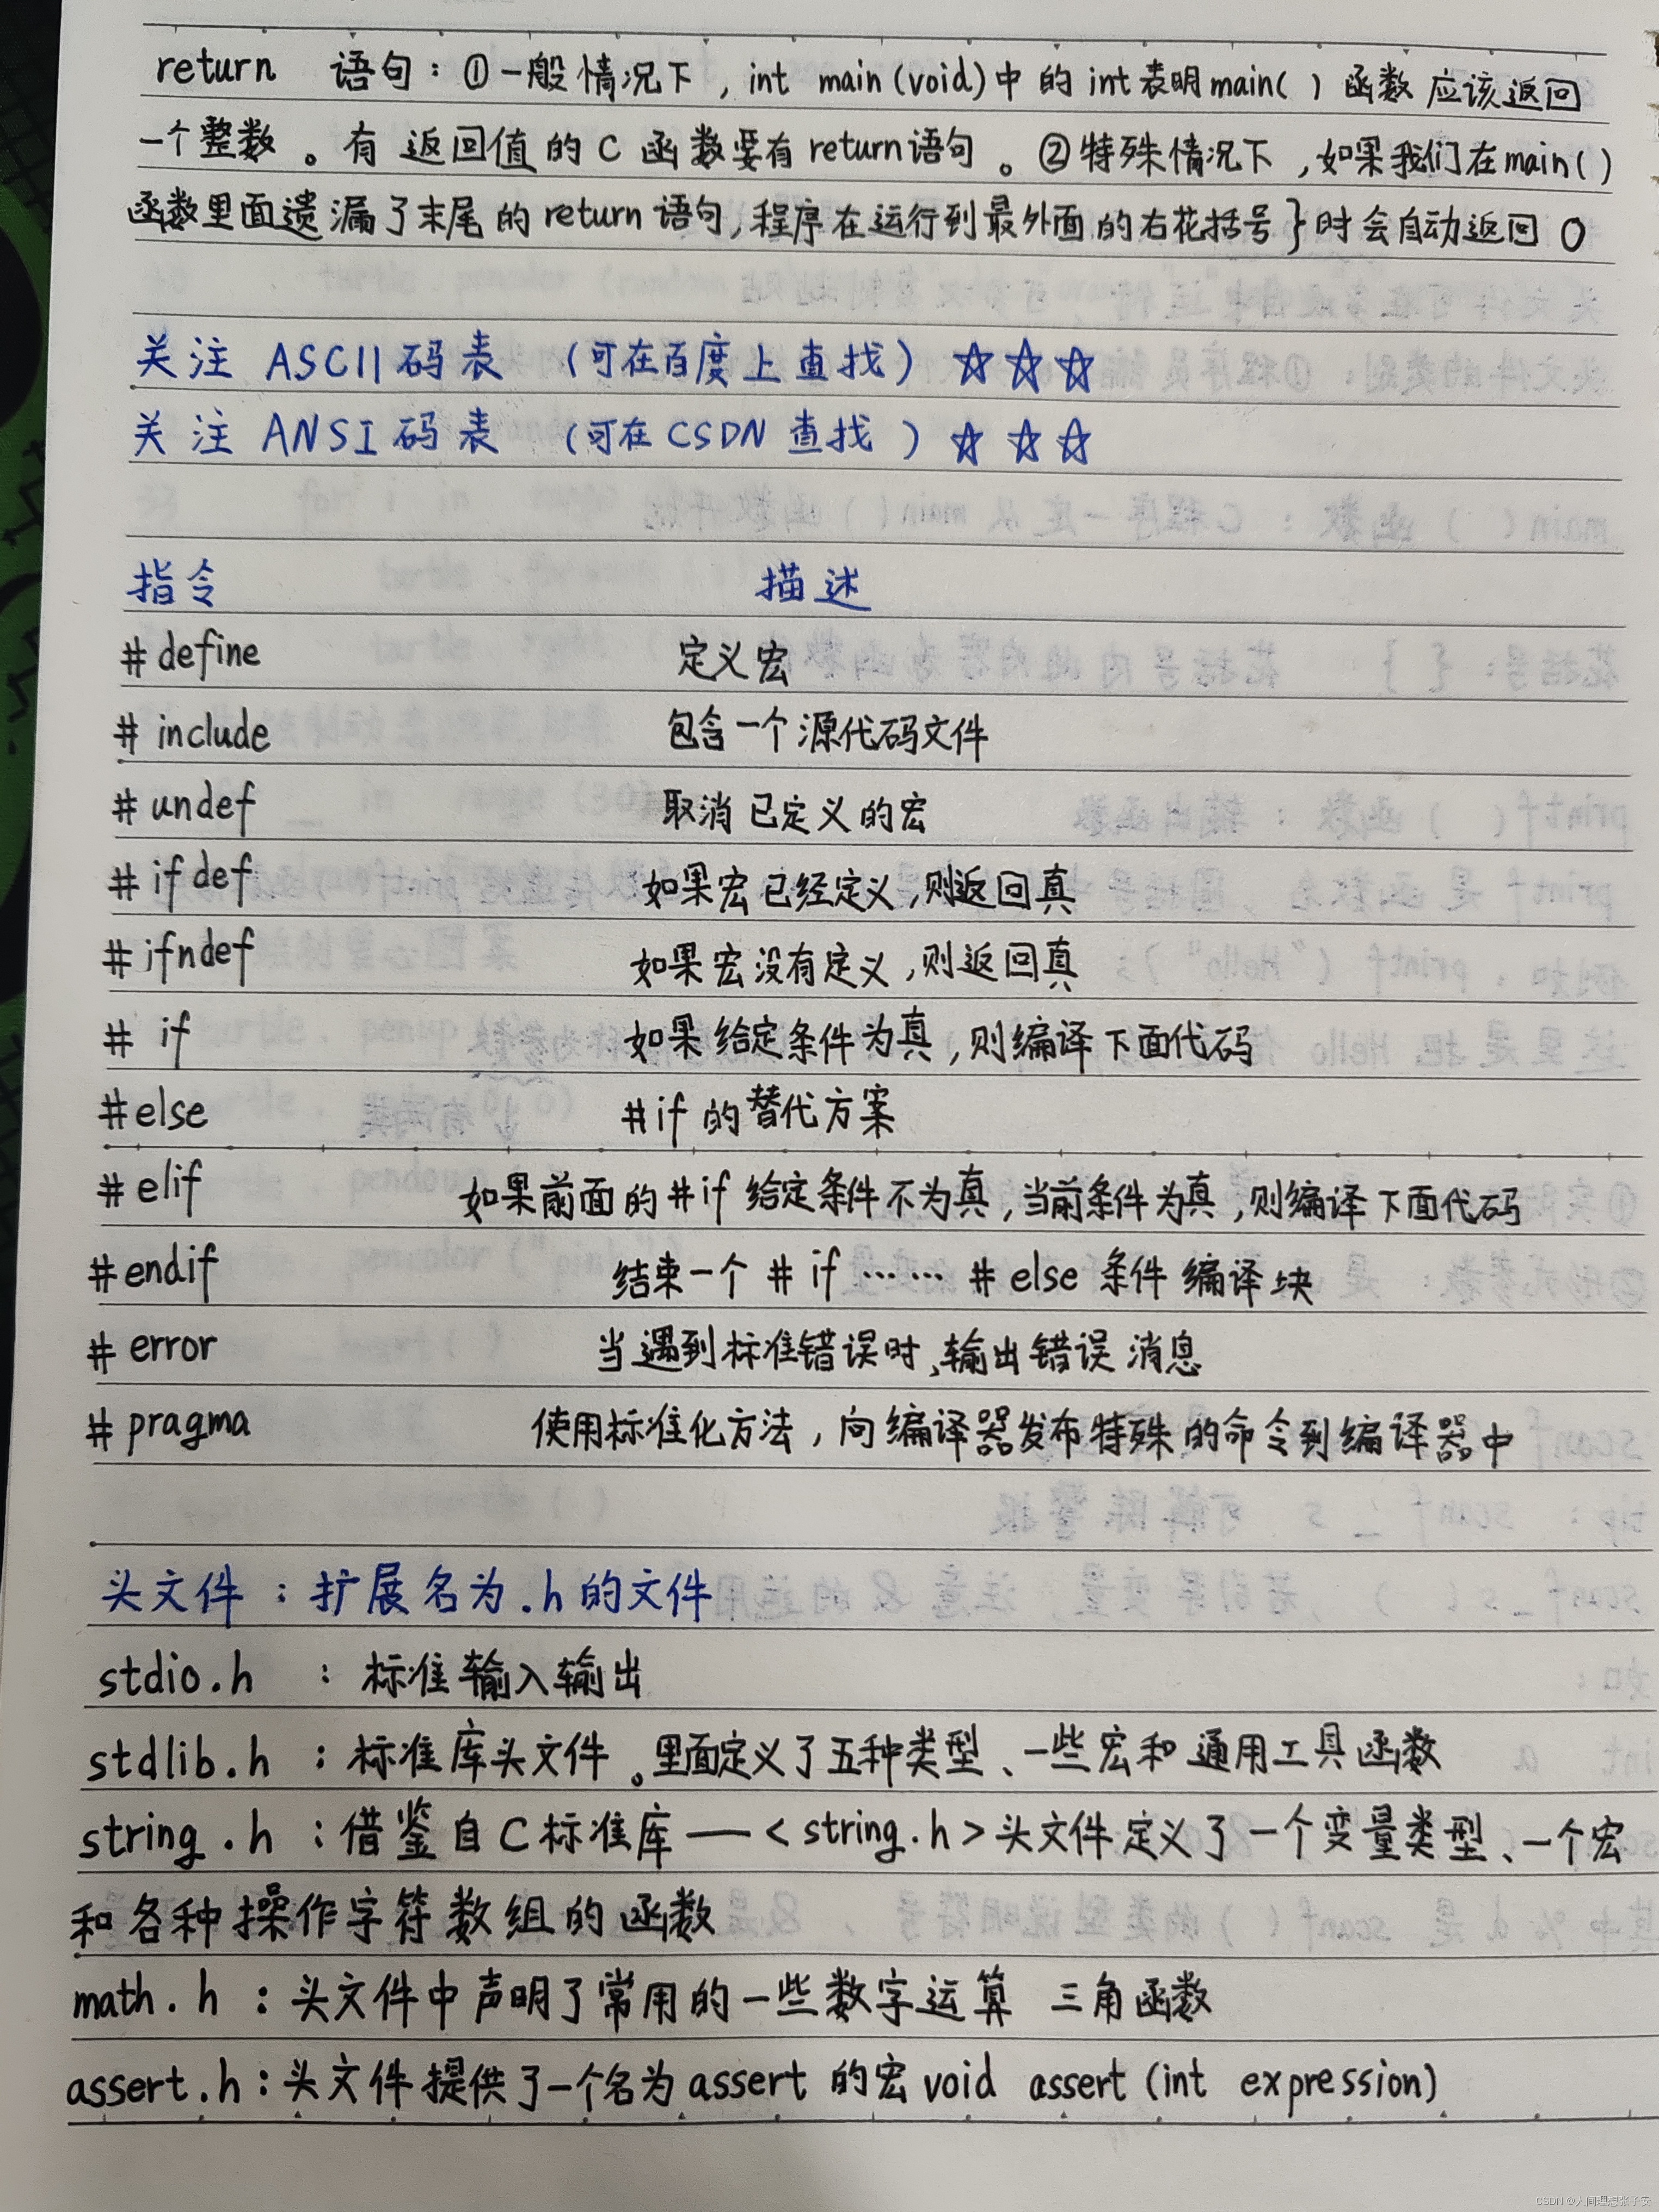 return 语句：①一般情况下，int main(void)中的int表明main( )函数应该返回
一个整数。有返回值的C函数要有return语句。②特殊情况下，如果我们在main( )
函数里面遗漏了末尾的return语句，程序在运行到最外面的右花括号}时会自动返回0
关注 ASCII码表 （可在百度上查找）☆☆☆
关注 ANSI码表 （可在CSDN查找）☆☆☆
指令 描述
#define 定义宏
#include 包含一个源代码文件
#undef 取消已定义的宏
#ifdef 如果宏已经定义，则返回真
#ifndef 如果宏没有定义，则返回真
#if 如果给定条件为真，则编译下面代码
#else #if的替代方案
#elif 如果前面的#if给定条件不为真，当前条件为真，则编译下面代码
#endif 结束一个#if……#else条件编译块
#error 当遇到标准错误时，输出错误消息
#pragma 使用标准化方法，向编译器发布特殊的命令到编译器中
头文件：扩展名为.h的文件
stdio.h ：标准输入输出
stdlib.h ：标准库头文件。里面定义了五种类型、一些宏和通用工具函数
string.h ：借鉴自C标准库——<string.h>头文件定义了一个变量类型、一个宏
和各种操作字符数组的函数
math.h ：头文件中声明了常用的一些数字运算 三角函数
assert.h：头文件提供了一个名为assert的宏void assert(int expression)
CSDN @人间理想张子安